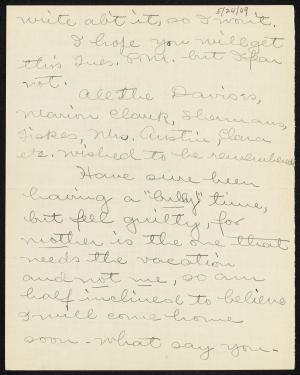 5/24/09
write ab't it, so I won't.
I hope you will get
this Tues. P.M. but I fear
not.
All the Davises,
Marion Clark, Shermans,
Fiskes, Mrs. Austin, Clara
etc. wished to be remembered
Have sure been
having a "bully" time,
but feel guilty, for
mother is the one that
needs the vacation
and not me, so am
half inclined to believe
I will come home
soon - what say you -